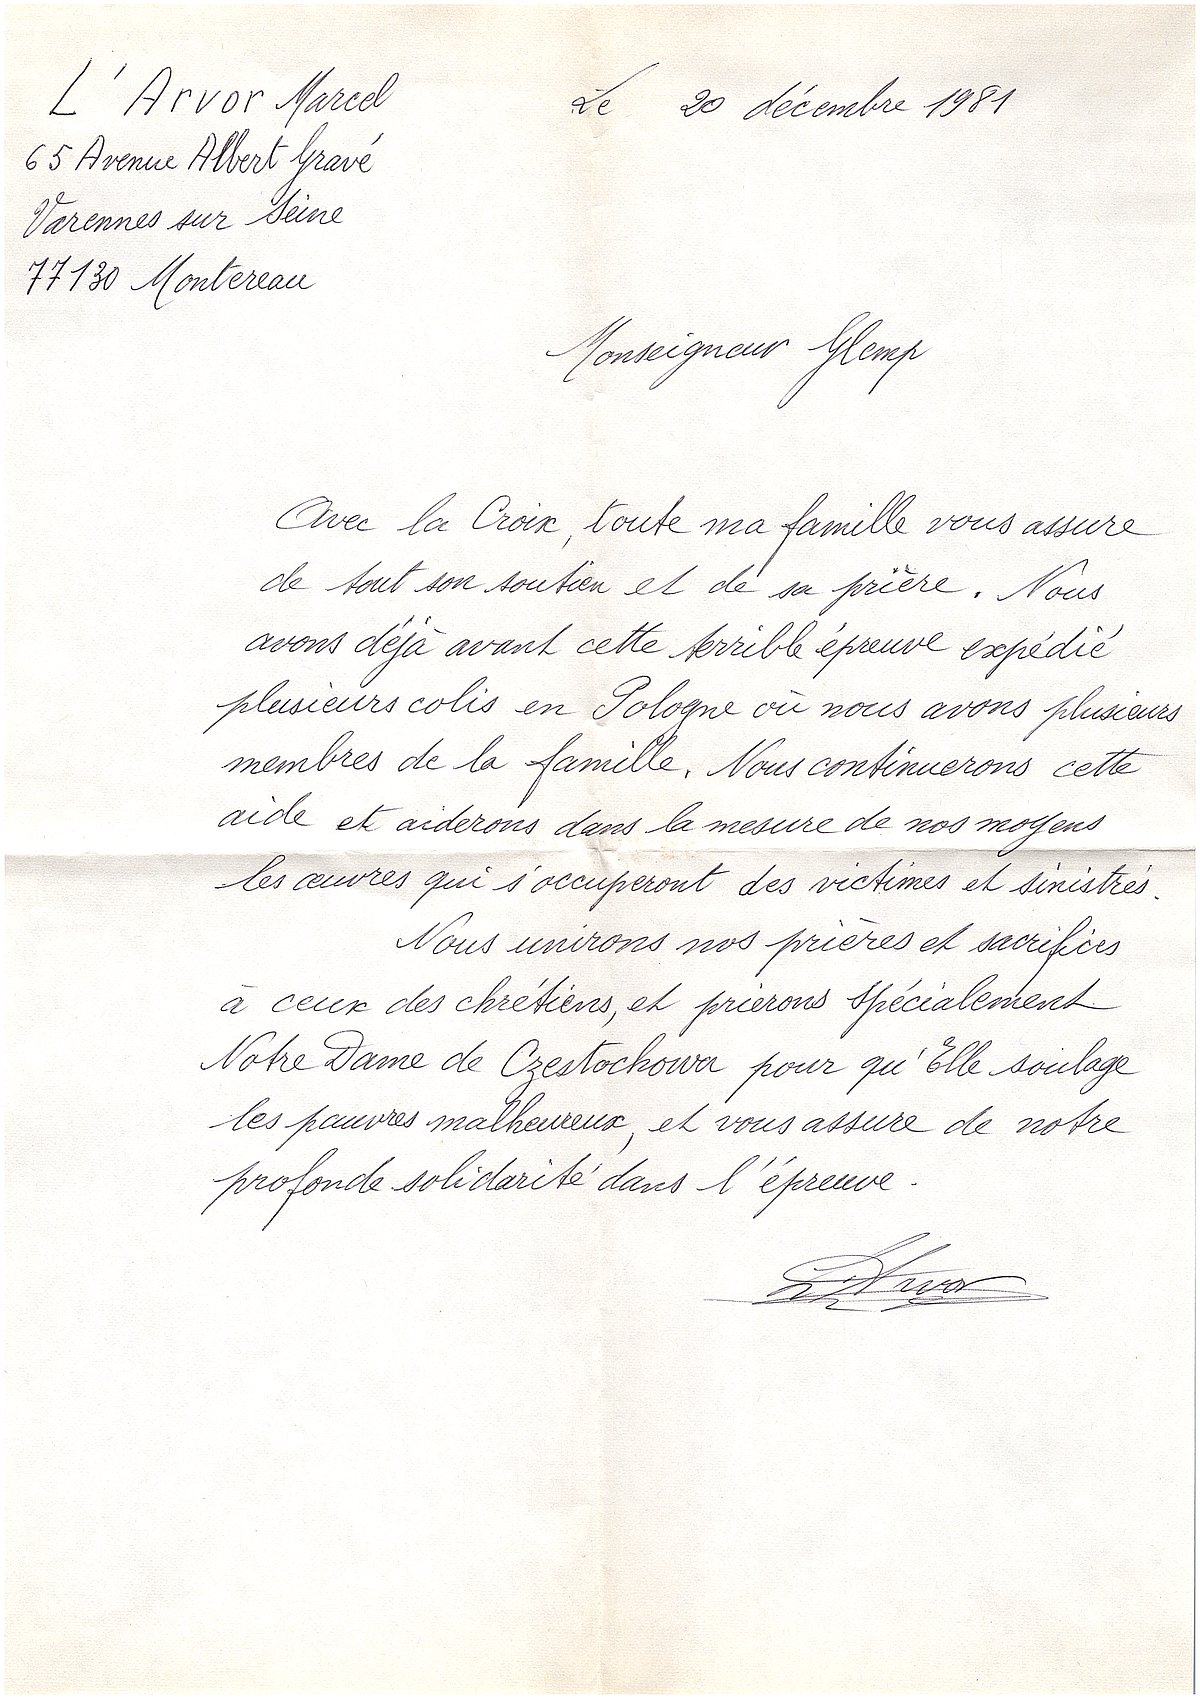 L'Arvor Marcel
Le 20 décembre 1981
65 Avenue Albert Gravé
Varennes sur Seine
77130 Montereau
Monseigneur Glemp
Avec la Croix, toute ma famille vous assure
de tout son soutien et de sa prière. Nous
avons déjà avant cette terrible épreuve expédié
plusieurs colis en Pologne où nous avons plusieurs
membres de la famille. Nous continuerons cette
aide et aiderons dans la mesure de nos moyens
les œuvres qui s'occuperont des victimes et sinistrés.
Nous unirons nos prières et sacrifices
à ceux des chrétiens, et prierons spécialement
Notre Dame de Czestochowa pour qu'Elle soulage
les pauvres malheureux, et vous assure de notre
profonde solidarité dans l'épreuve.
L'Arvor